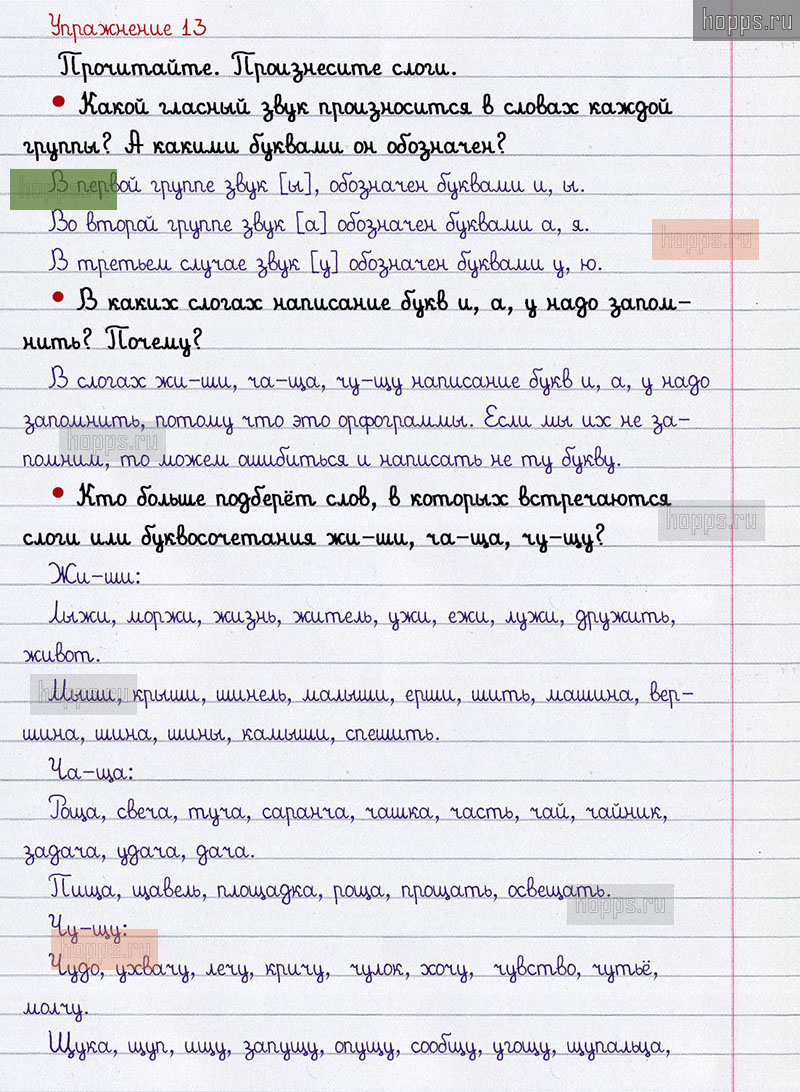 hopps.ru
Упражнение 13
Прочитайте. Произнесите слоги.
• Какой гласный звук произносится в словах каждой
группы? А какими буквами он обозначен?
В первой группе звук [ы], обозначен буквами и, ы.
Во второй группе звук [а] обозначен буквами а, я.
hopps.ru
В третьем случае звук [у] обозначен буквами у, ю.
• В каких слогах написание букв и, а, у надо запом–
нить? Почему?
В слогах жи–ши, ча–ща, чу–щу написание букв и, а, у надо
запомнить, потому что это орфограммы. Если мы их не за–
hopps.ru
помним, то можем ошибиться и написать не ту букву.
• Кто больше подберёт слов, в которых встречаются
hopps.ru
слоги или буквосочетания жи–ши, ча–ща, чу–щу?
Жи–ши:
Лыжи, моржи, жизнь, житель, ужи, ежи, лужи, дружить,
живот.
hopps.ru
Мыши, крыши, шинель, малыши, ерши, шить, машина, вер–
шина, шина, шины, камыши, спешить.
Ча–ща:
Роща, свеча, туча, саранча, чашка, часть, чай, чайник,
задача, удача, дача.
Пища, щавель, площадка, роща, прощать, освещать.
hopps.ru
Чу–щу:
hopps.ru
Чудо, ухвачу, лечу, кричу, чулок, хочу, чувство, чутьё,
молчу.
Щука, щуп, ищу, запущу, опущу, сообщу, угощу, щупальца,